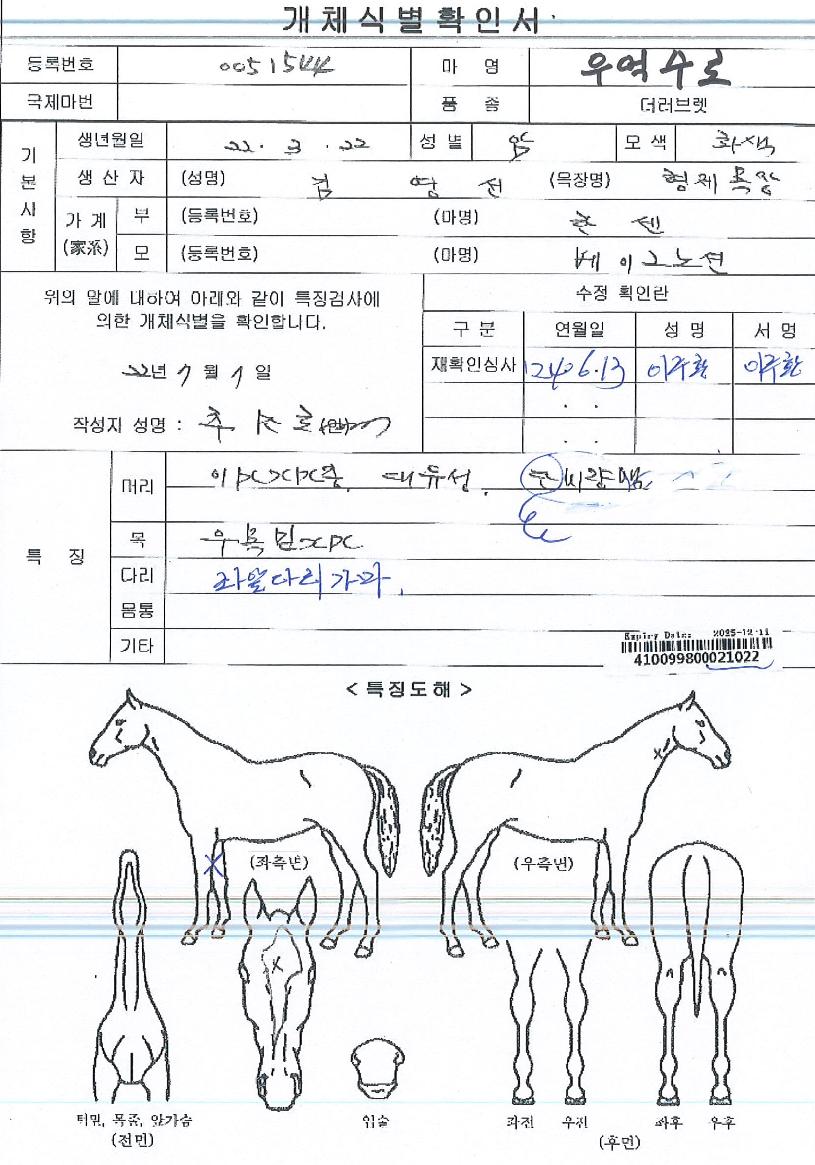 개체식별확인서
등록번호 0051544 마 명 우역수로
국제마번 품 종 더러브렛
기본사항
생년월일 22. 3. 22 성별 암 모색
생산자 (성명) 김 영 선 (목장명) 형제목장
가계(家系) 부 (등록번호) (마명)
모 (등록번호) (마명) 베이그노전
위의 말에 대하여 아래와 같이 특징검사에
의한 개체식별을 확인합니다.
22년 7월 1일
작성자 성명 :
수정 확인란
구분 연월일 성명 서명
재확인심사 24.06.13 이주환 이주환
특 징
머리 대유성.
목
다리 좌앞다리가마.
몸통
기타
Expiry Date: 2025-12-11
410099800021022
< 특징도해 >
(좌측면) (우측면)
턱밑, 목줄, 앞가슴
(전면)
입술
좌전 우전 좌후 우후
(후면)